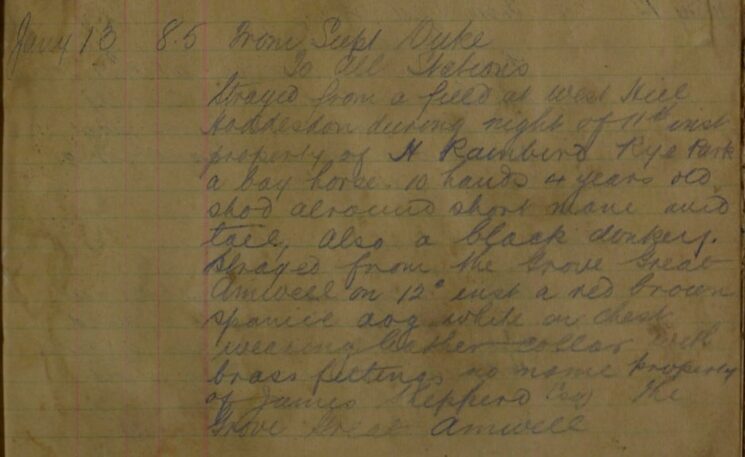 Jany 13 8.5 From Supt Duke
To All Stations
Strayed from a field at West Hill
Hoddesdon during night of 11th inst
property of H Rainbird Rye Park
a bay horse. 10 hands 4 years old
shod alround short mane and
tail, Also a black donkey.
Strayed from the Grove Great
Amwell on 12th inst a red brown
spaniel dog white on chest
wearing leather collar with
brass fittings no name property
of James Shepperd Esq The
Grove Great Amwell